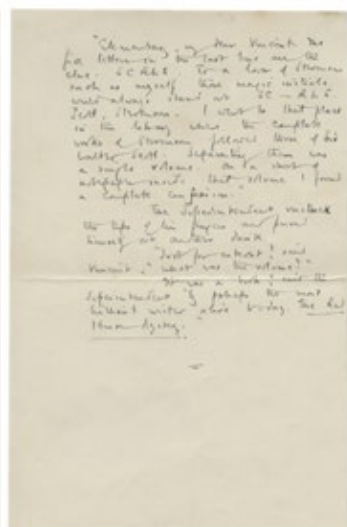 "Elementary, my dear Vincent. The
five letters in the last line are the
clue. S C R & S. To a lover of Stevenson
such as myself, these magic initials
would always stand out SC — R L S.
Scott, Stevenson. I went to that place
in the library where the complete
works of Stevenson followed those of Sir
Walter Scott. Separating them was
a single volume. On a sheet of
notepaper inside that volume I found
a complete confession."
The Superintendent
the tips of his fingers and poured
himself out another drink
"Just for interest," said
Vincent, "what was the volume?"
"It was a book," said the
Superintendent "by perhaps the most
brilliant writer alive today. The Red
House Mystery."